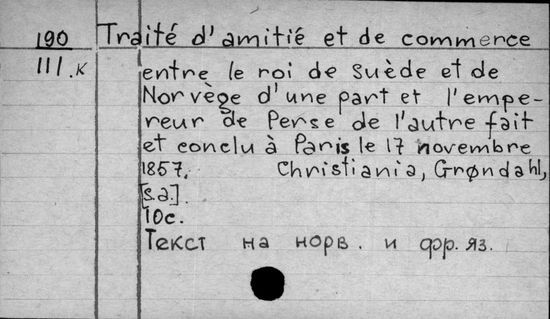 190 Traité d'amitié et de commerce
III.K entre le roi de suède et de
Norvège d'une part et l'empe-
reur de Perse de l'autre fait
et conclu à Paris le 17 novembre
1857. Christiania, Grøndahl,
[s.a.].
10c.
Текст на норв. и фр. яз.